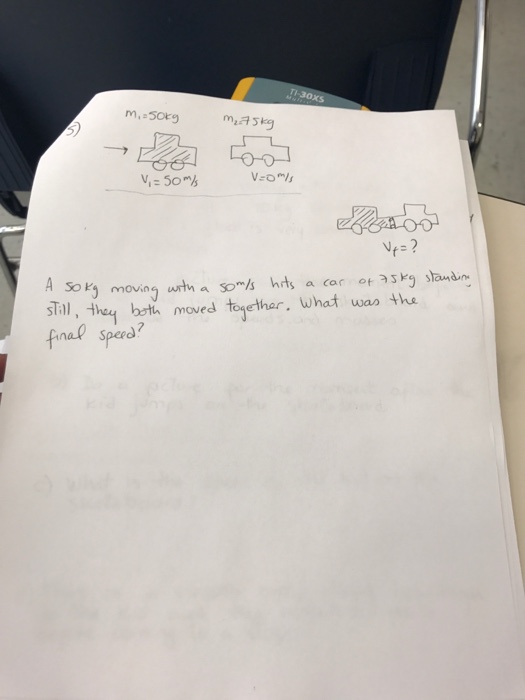 TI-30XS
5)
m₁=50kg m₂=75kg
V₁= 50 m/s V=0 m/s
Vf=?
A 50kg moving with a 50m/s hits a car of 75kg standing
still, they both moved together. What was the
final speed?